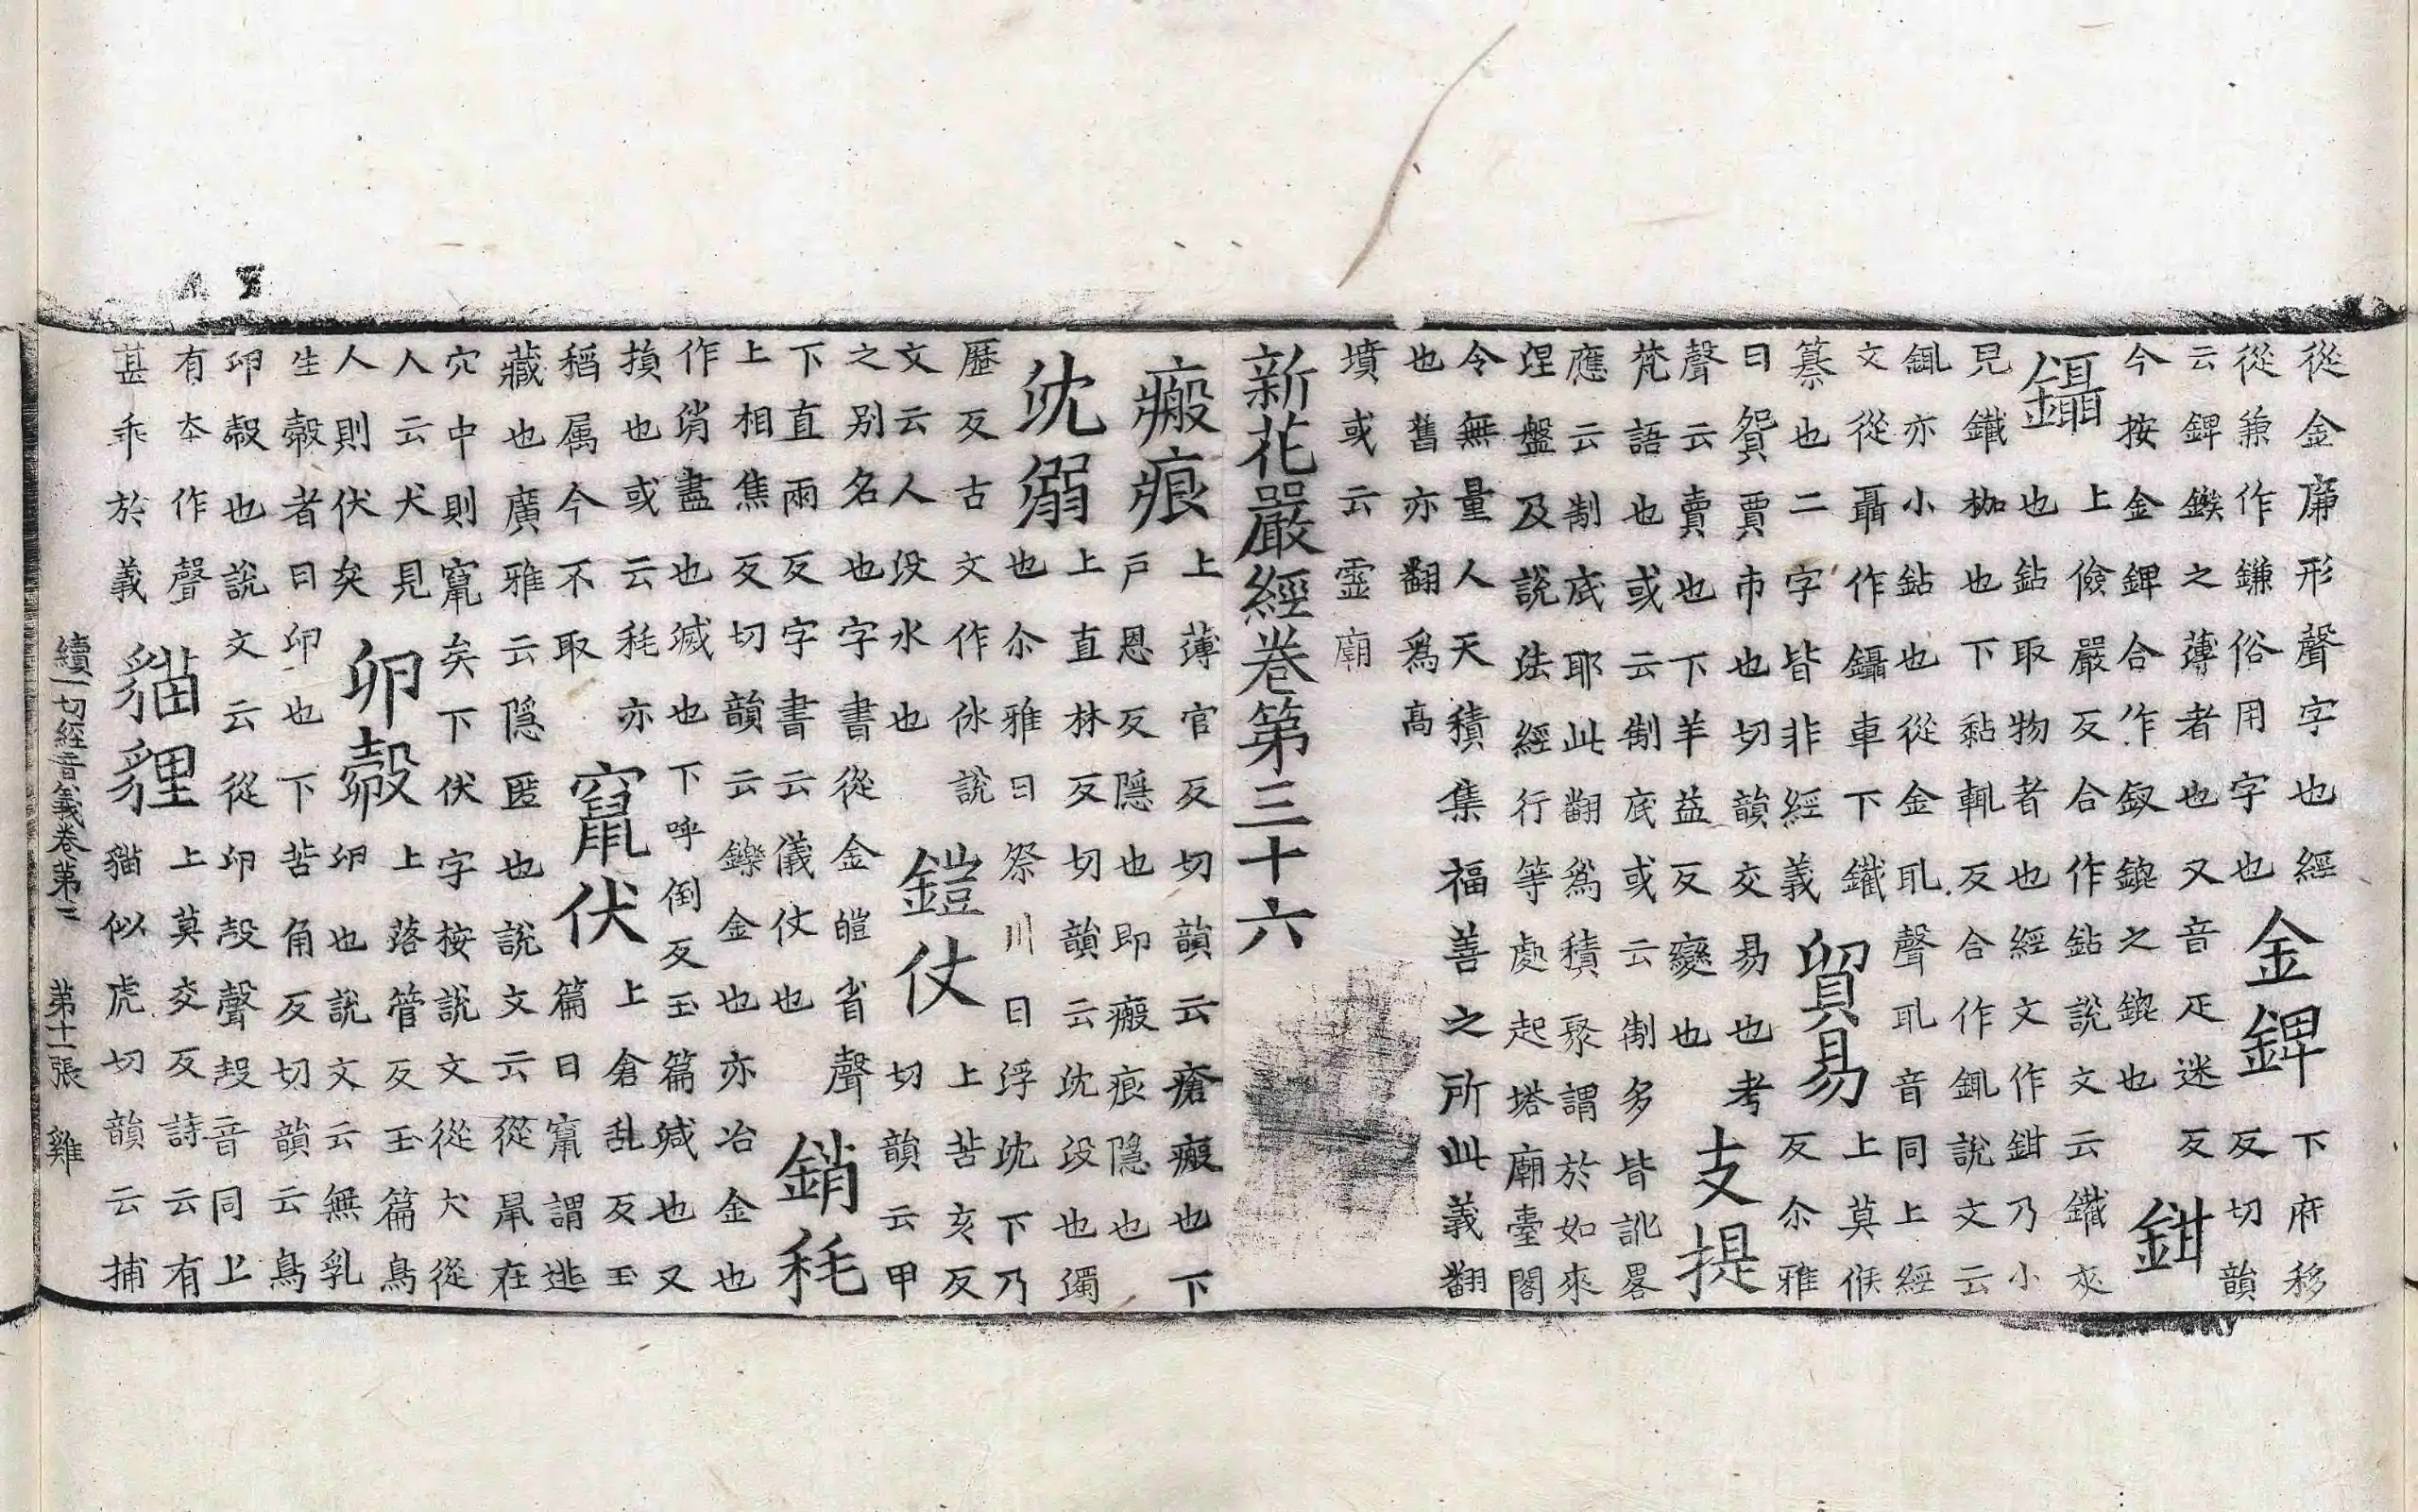 從金廉形聲字也經
從兼作鎌俗用字也
金錍
下府移
反切韻
云錍鏃之薄者也又音疋迷反
今按金錍合作釵鎞之鎞也
鉗
鑷
上儉嚴反合作鉆說文云鐵夾
也鉆取物者也經文作鉗乃小
皃鐵枷也下黏輒反合作銸說文云
銸亦小鉆也從金耴聲耴音同上經
文從聶作鑷車下鐵
纂也二字皆非經義
貿易
上莫候
反尒雅
曰貿賈市也切韻交易也考
聲云賣也下羊益反變也
支提
梵語也或云制底或云制多皆訛畧
應云制底耶此翻為積聚謂於如來
涅盤及說法經行等處起塔廟臺閣
令無量人天積集福善之所此義翻
也舊亦翻為高
墳或云靈廟
新花嚴經卷第三十六
瘢痕
上薄官反切韻云瘡瘢也下
戶恩反隱也即瘢痕隱也
沈溺
上直林反切韻云沈没也濁
也尒雅曰祭川曰浮沈下乃
歷反古文作㲻說
文云人没水也
鎧仗
上苦亥反
切韻云甲
之別名也字書從金皚省聲
下直兩反字書云儀仗也
銷耗
上相焦反切韻云鑠金也亦冶金也
作消盡也滅也下呼倒反玉篇減也又
損也或云耗亦
稻属今不取
竄伏
上倉乱反玉
篇曰竄謂逃
藏也廣雅云隱匿也說文云從鼠在
穴中則竄矣下伏字按說文從犬從
人云犬見
人則伏矣
卵㲉
上落管反玉篇鳥
卵也說文云無乳
生㲉者曰卵也下苦角反切韻云鳥
卵㲉也說文云從卵㱿聲㱿音同上
有本作聲
甚乖於義
貓貍
上莫交反詩云有
貓似虎切韻云捕
續一切經音義卷第二 第十一張 雞